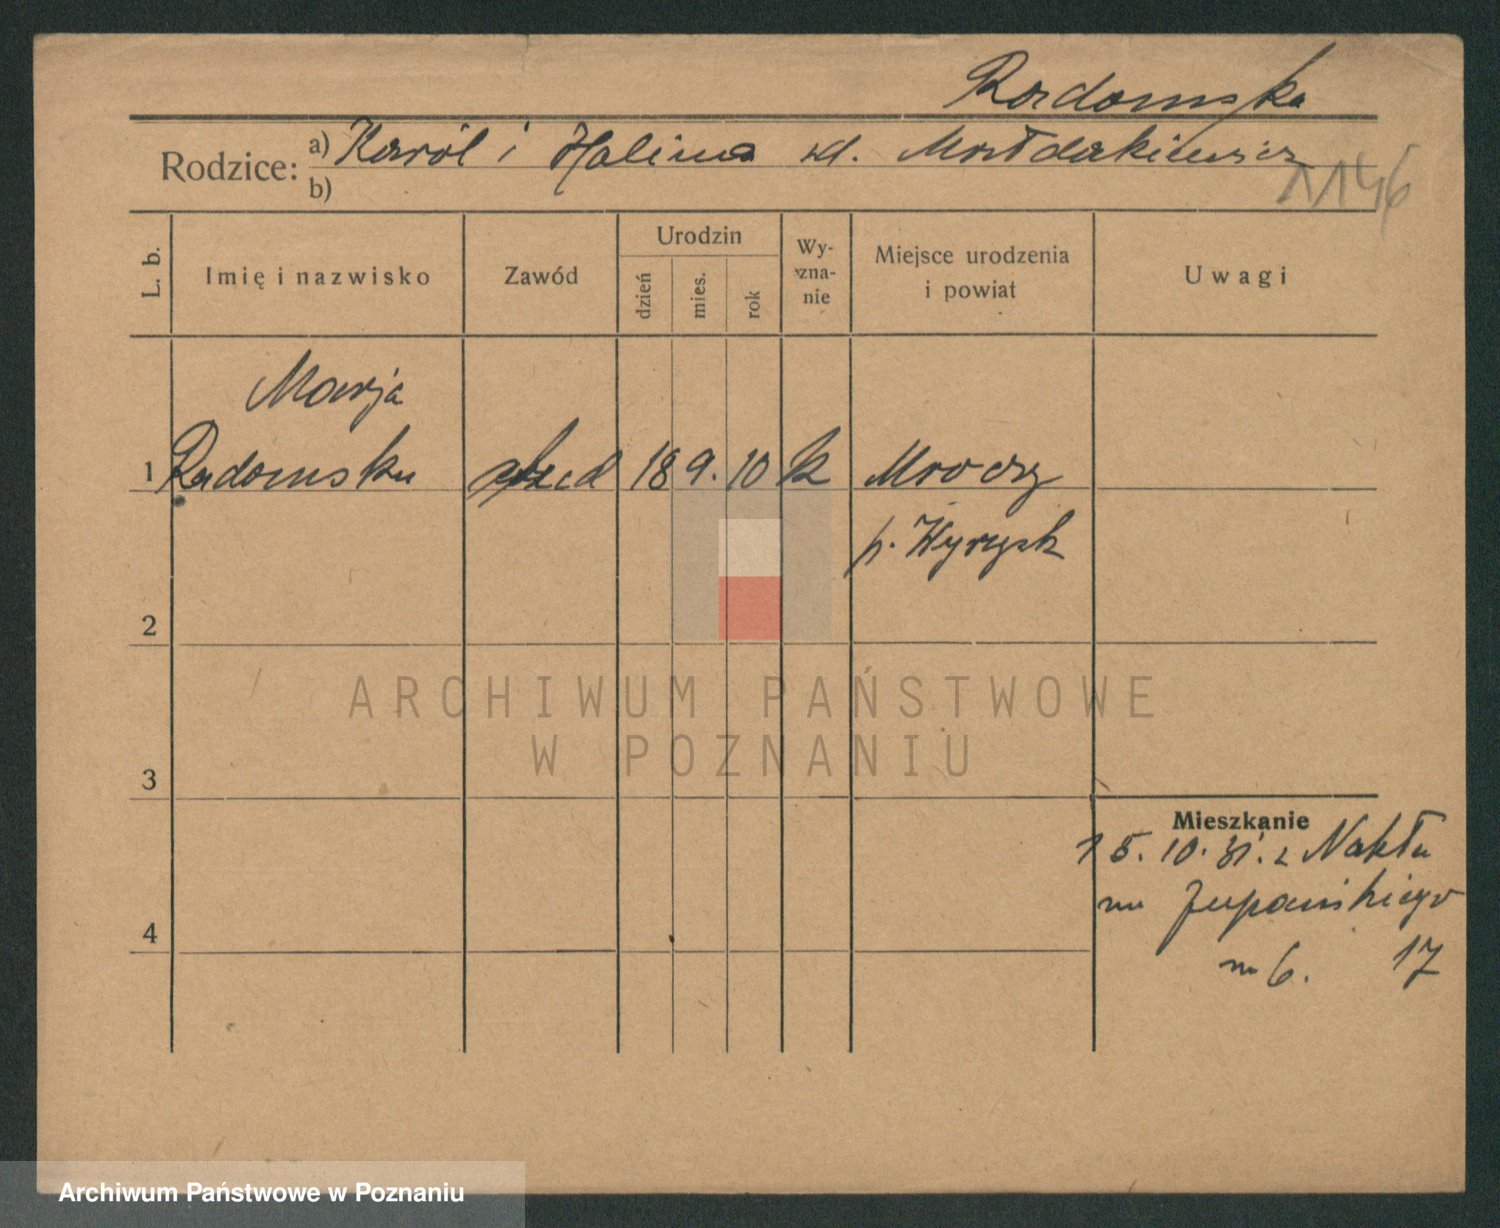 Radomska
Rodzice: a) Karól i Halina zd. Mołdakiewicz
b)
1146
L. b.
Imię i nazwisko
Zawód
Urodzin
dzień
mies.
rok
Wy-
zna-
nie
Miejsce urodzenia
i powiat
Uwagi
Marja
1 Radomska 18 9. 10 k Mrocza
p. Wyrzysk
2
ARCHIWUM PAŃSTWOWE
W POZNANIU
3
Mieszkanie
15. 10. 31. z Nakła
Żupańskiego
m 6. 17
4
Archiwum Państwowe w Poznaniu